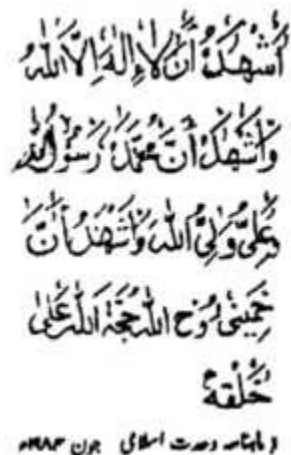 أَشْهَدُ أَنْ لَا إِلٰهَ إِلَّا اللهُ
وَأَشْهَدُ أَنَّ مُحَمَّدً رَسُوْلُ اللهِ
وَعَلِيٌّ وَلِيُّ اللهِ وَأَشْهَدُ أَنَّ
خُمِيْنِيْ رُوْحُ اللهِ حُجَّةُ اللهِ عَلٰى
خَلْقِهٖ
ماہنامہ وحدت اسلامی جون ۱۹۸۴ء